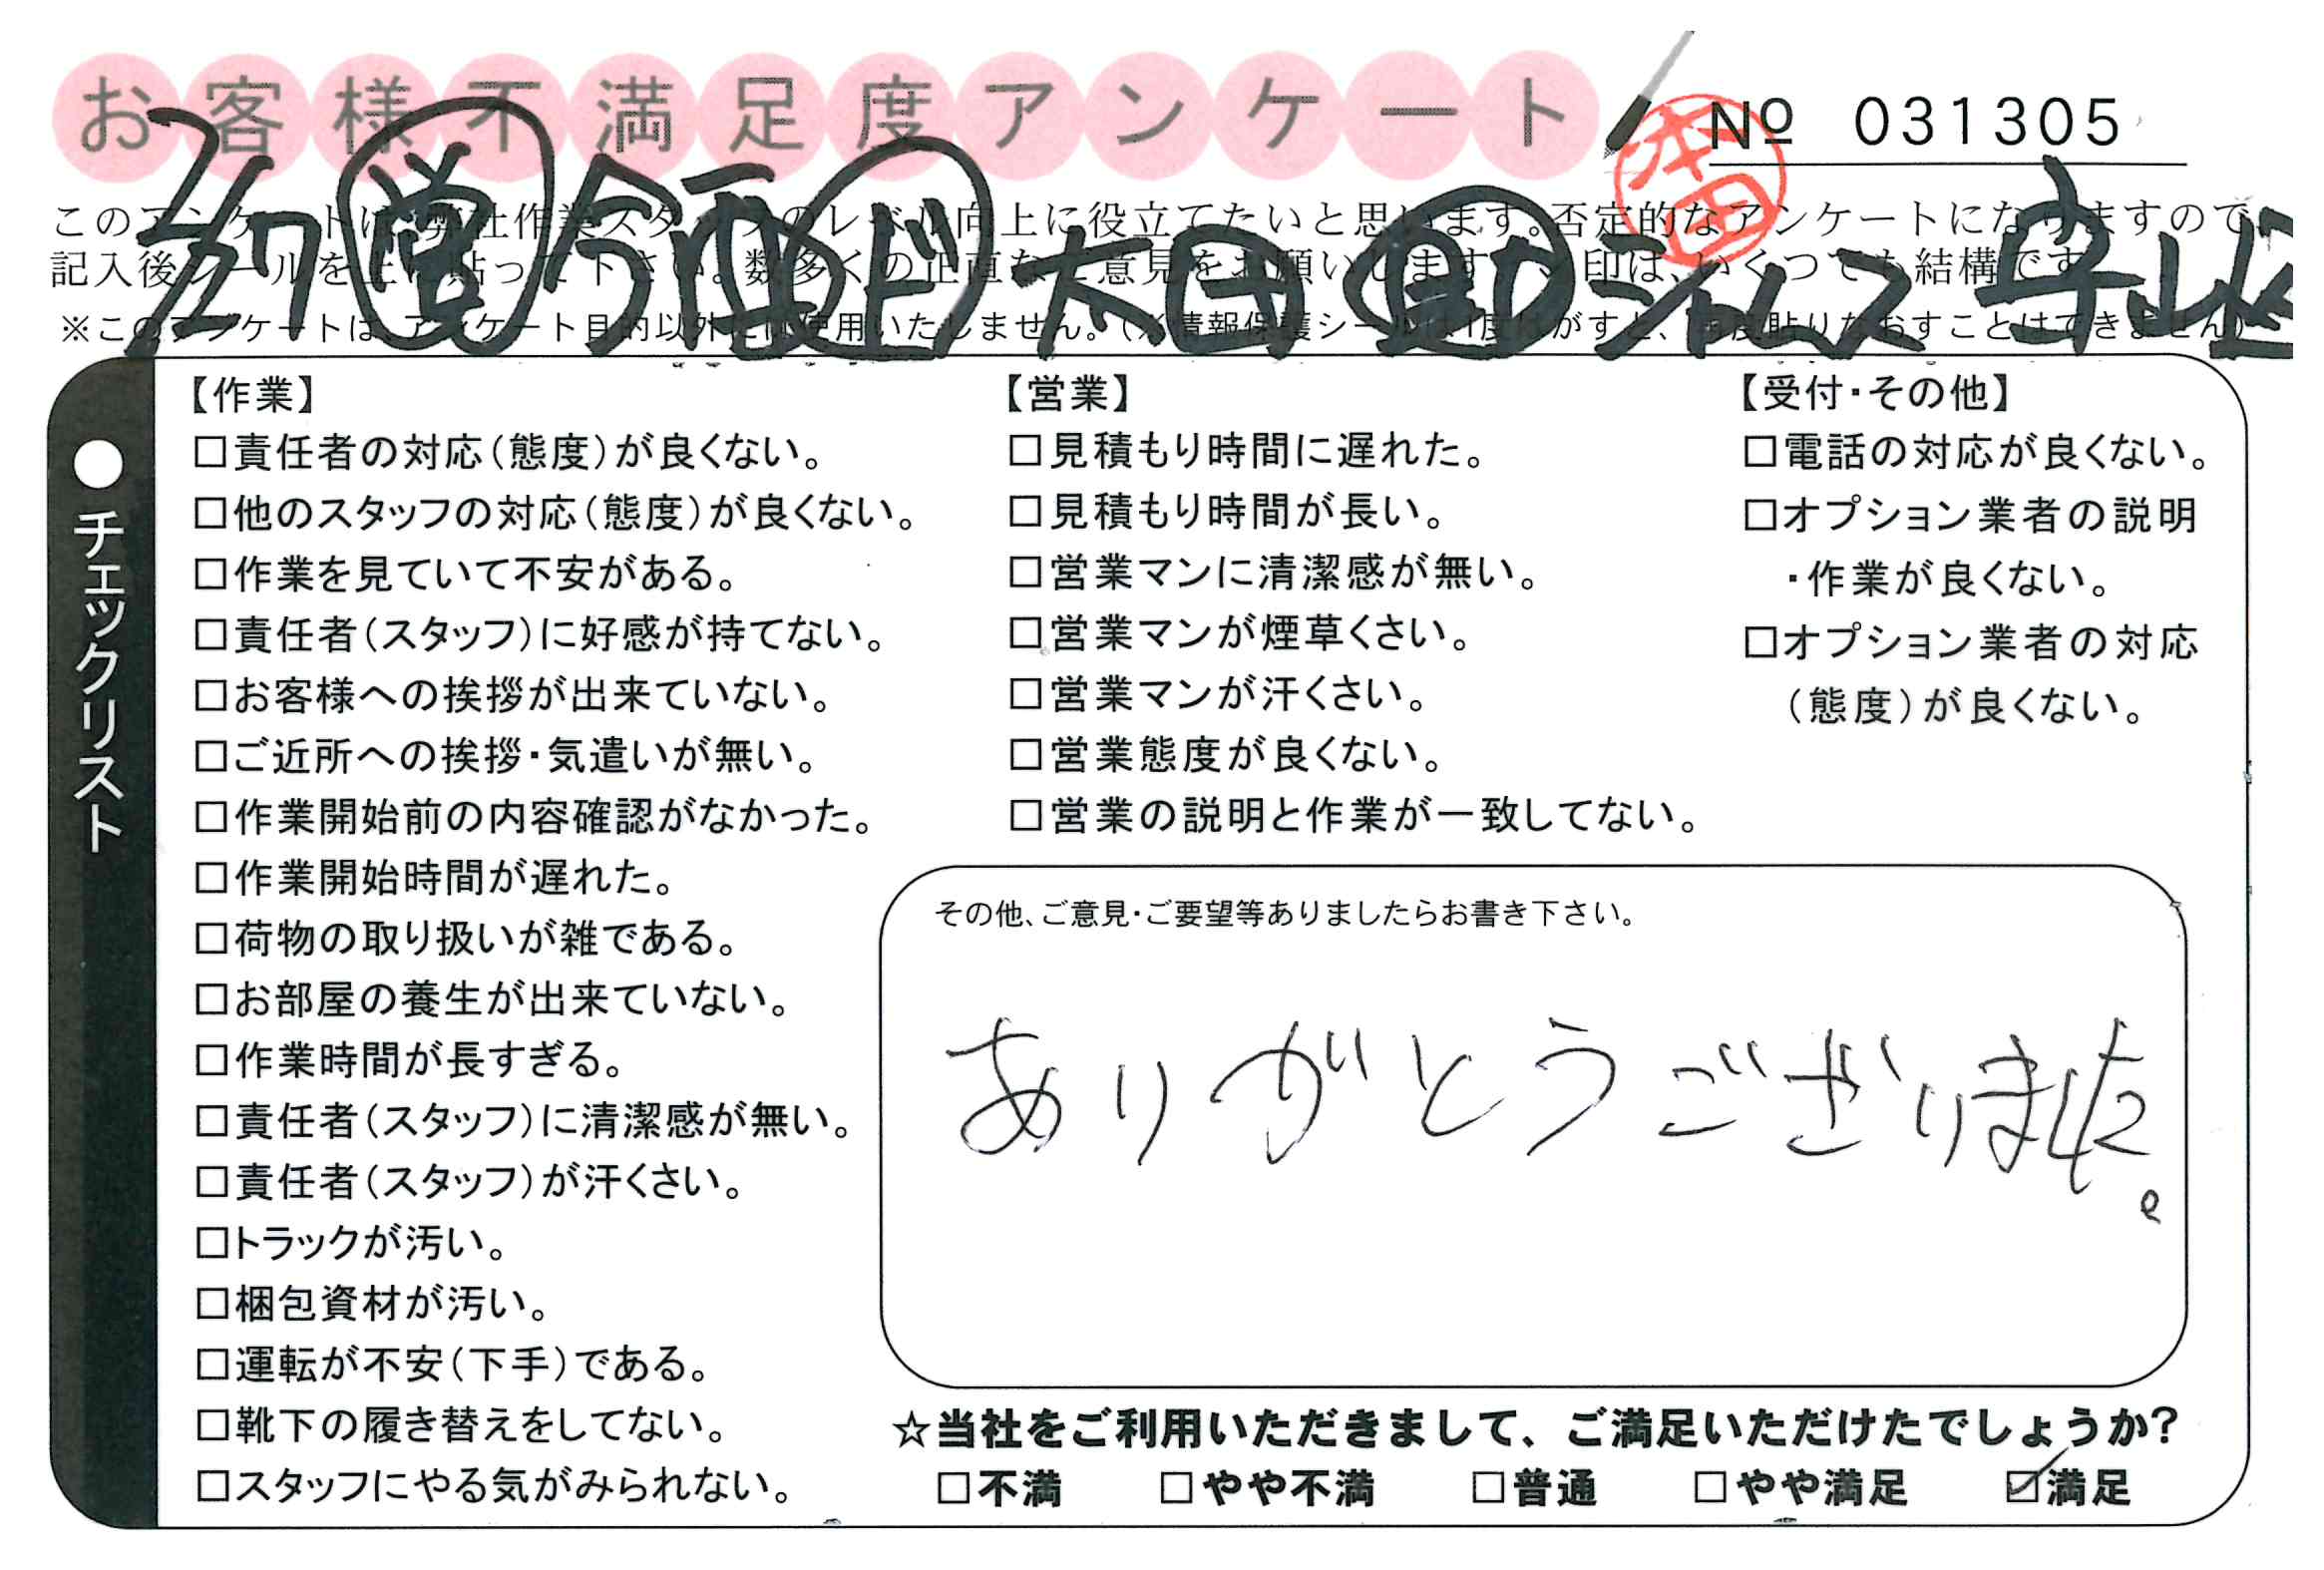 お客様不満足度アンケート
№ 031305
本田
このアンケートは、弊社作業スタッフのレベル向上に役立てたいと思います。否定的なアンケートになりますので、
記入後シールを上に貼って下さい。数多くの正直なご意見をお願いします。レ印は、いくつでも結構です。
※このアンケートは、アンケート目的以外には使用いたしません。(※情報保護シールは1度はがすと、再度貼りなおすことはできません)
2/27 営 今 ド 太田 シャルムス 守山
●チェックリスト
【作業】
□責任者の対応(態度)が良くない。
□他のスタッフの対応(態度)が良くない。
□作業を見ていて不安がある。
□責任者(スタッフ)に好感が持てない。
□お客様への挨拶が出来ていない。
□ご近所への挨拶・気遣いが無い。
□作業開始前の内容確認がなかった。
□作業開始時間が遅れた。
□荷物の取り扱いが雑である。
□お部屋の養生が出来ていない。
□作業時間が長すぎる。
□責任者(スタッフ)に清潔感が無い。
□責任者(スタッフ)が汗くさい。
□トラックが汚い。
□梱包資材が汚い。
□運転が不安(下手)である。
□靴下の履き替えをしてない。
□スタッフにやる気がみられない。
【営業】
□見積もり時間に遅れた。
□見積もり時間が長い。
□営業マンに清潔感が無い。
□営業マンが煙草くさい。
□営業マンが汗くさい。
□営業態度が良くない。
□営業の説明と作業が一致してない。
【受付・その他】
□電話の対応が良くない。
□オプション業者の説明
・作業が良くない。
□オプション業者の対応
(態度)が良くない。
その他、ご意見・ご要望等ありましたらお書き下さい。
ありがとうございりました。
☆当社をご利用いただきまして、ご満足いただけたでしょうか?
□不満 □やや不満 □普通 □やや満足 ☑満足